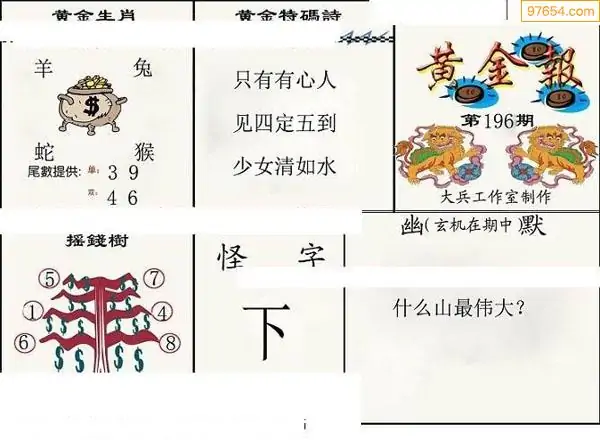 97654.com
黄金生肖
羊 兔
$
蛇 猴
尾數提供: 单: 3 9
双: 4 6
黄金特碼詩
只有有心人
见四定五到
少女清如水
黄金報
第196期
大兵工作室制作
摇錢樹
⑤ ⑦
① ④
⑥ ⑧
怪 字
下
幽(玄机在期中)默
什么山最伟大?
i